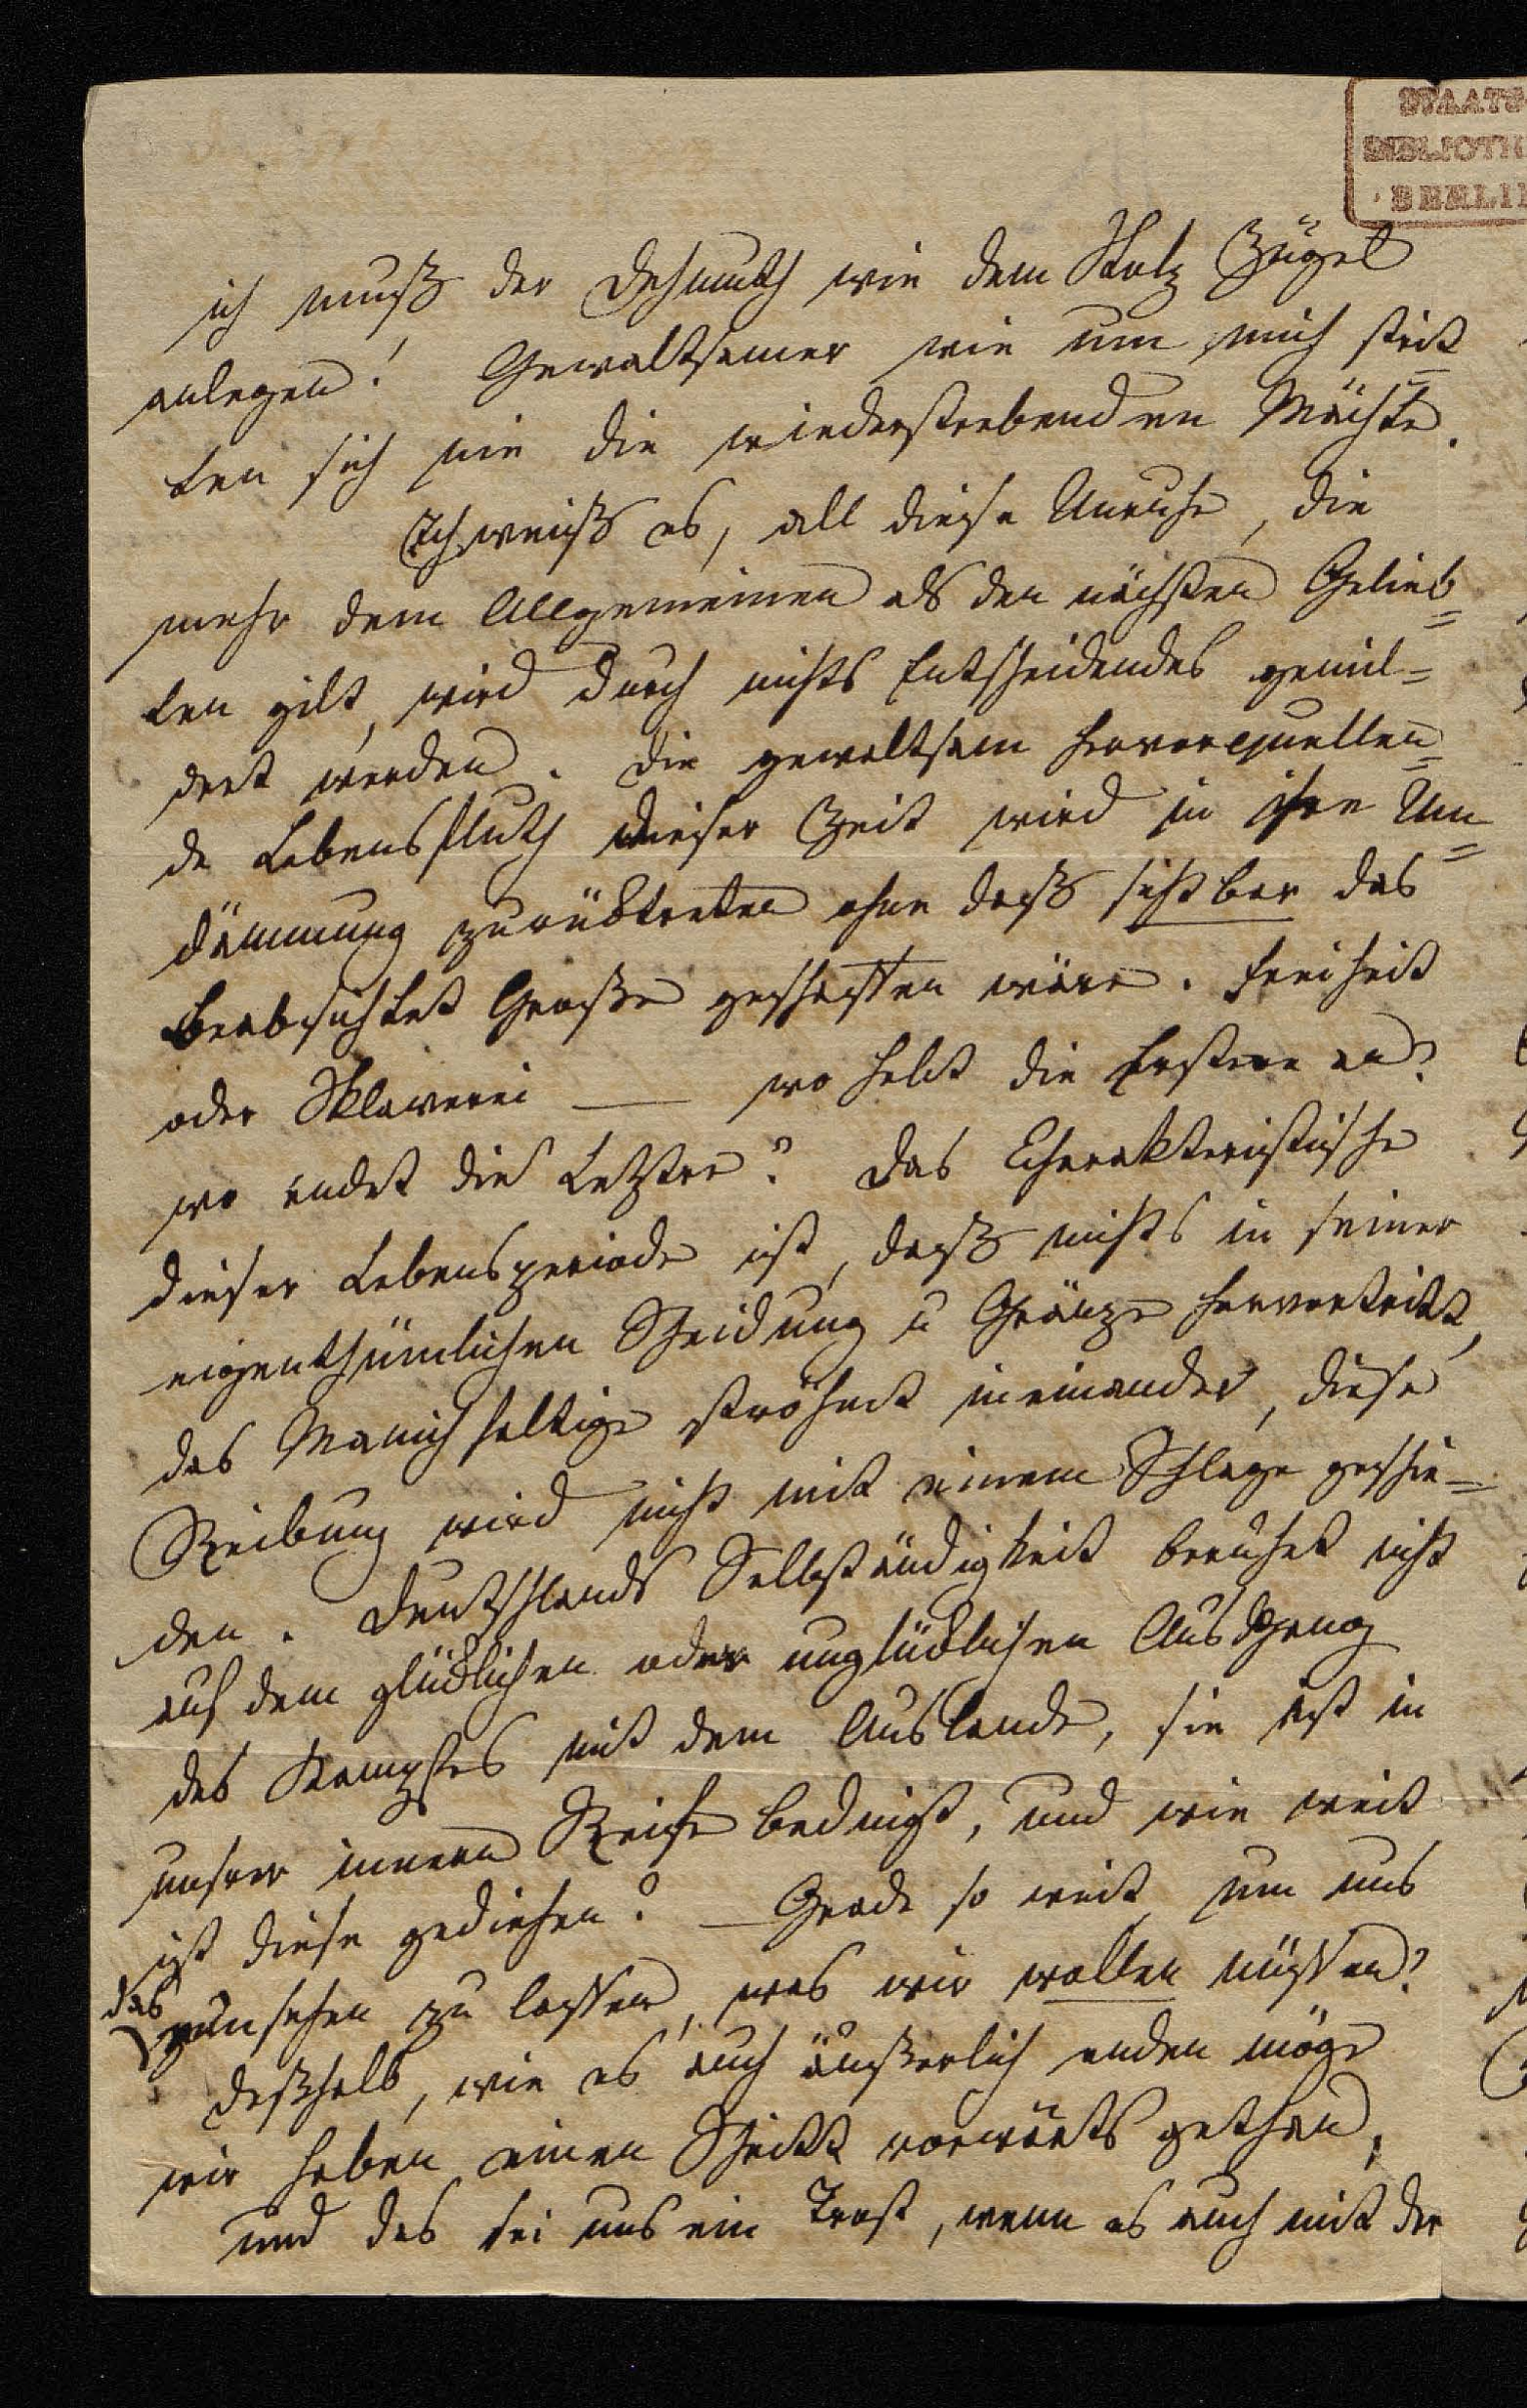 STAATS
BIBLIOTH
BERLI
ich muß der Dehmuth wie dem Stolz Zügel
anlegen! Gewaltsamer wie um mich strit=
ten sich nie die wiederstrebenden Mächte.
Ich weiß es, all diese Unruhe, die
mehr dem Allgemeinen als den nächsten Gelieb=
ten gilt, wird durch nichts Entscheidendes gemil=
dert werden. Die gewaltsam hervorquellen=
de Lebensfluth dieser Zeit wird in ihre Um=
dämmung zurüktreten ohne daß sichtbar das
beabsichtet Große geschaffen wäre. Freiheit
oder Sklaverei — wo hebt die Erstere an?
wo endet die Letztre? Das Charakteristische
dieser Lebensperiode ist, daß nichts in seiner
eigenthümlichen Scheidung u Gränze hervortritt,
das Manichfaltige ströhmt ineinander, diese
Reibung wird nicht mit einem Schlage geschie=
den. Deutschlands Selbständigkeit beruhet nicht
auf dem glüklichen oder unglüklichen Ausgang
des Kampfes mit dem Auslande, sie ist in
unsrer innern Reife bedingt, und wie weit
ist diese gediehen? — Grade so weit, um uns
das
einsehen zu lassen, was wir wollen müssen?
deßhalb, wie es auch äußerlich enden möge
wir haben einen Schritt vorwärts gethan,
und das sei uns ein Trost, wenn es auch mit der